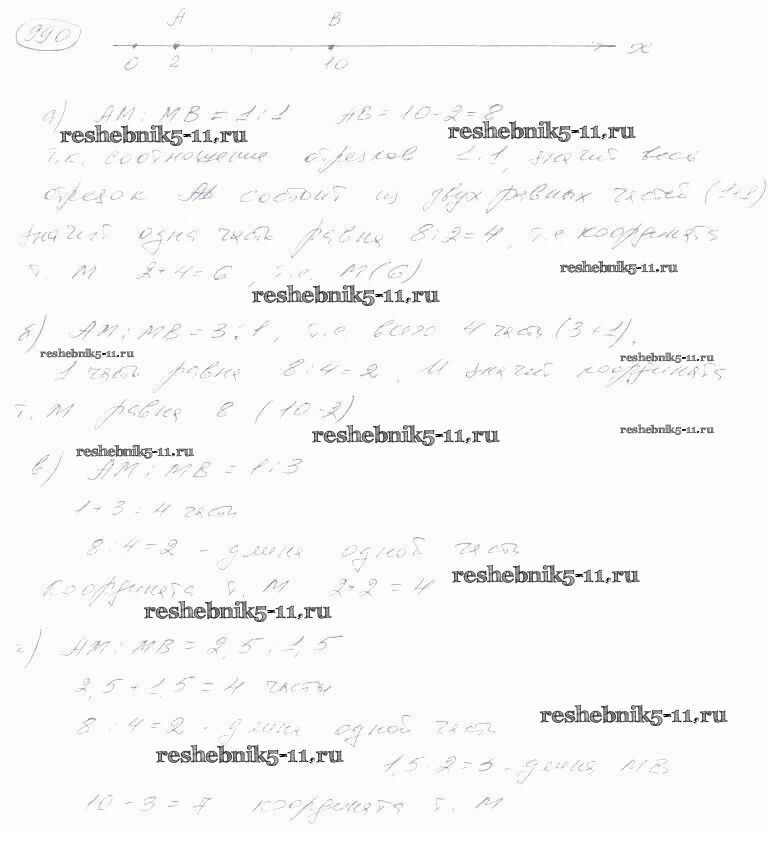 990
A B
0 2 10 x
а) AM : MB = 1 : 1 AB = 10 - 2 = 8
reshebnik5-11.ru reshebnik5-11.ru
т.к. соотношение отрезков 1:1, значит весь
отрезок AB состоит из двух равных частей (1+1)
значит одна часть равна 8 : 2 = 4, т.е координата
т. M 2+4=6, т.е. M(6)
reshebnik5-11.ru
reshebnik5-11.ru
б) AM : MB = 3 : 1, т.е. всего 4 части (3+1),
reshebnik5-11.ru reshebnik5-11.ru
1 часть равна 8:4=2. И значит координата
т. M равна 8 (10-2)
reshebnik5-11.ru reshebnik5-11.ru
reshebnik5-11.ru
в) AM : MB = 1 : 3
1+3=4 части
8:4=2 - длина одной части
координата т. M 2+2=4
reshebnik5-11.ru
reshebnik5-11.ru
г) AM : MB = 2,5 : 1,5
2,5+1,5=4 части
8:4=2 - длина одной части
reshebnik5-11.ru
reshebnik5-11.ru
1,5·2=3 - длина MB
10-3=7 координата т. M